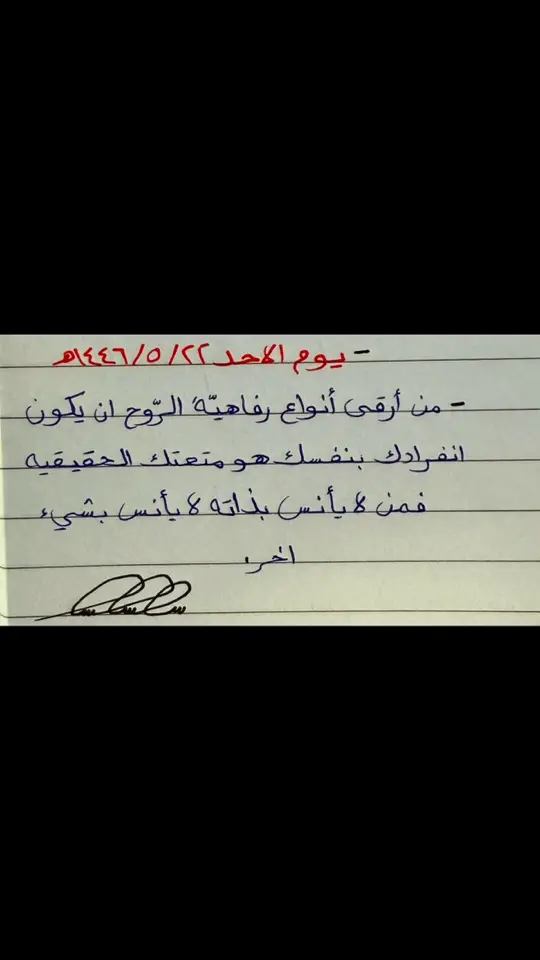 - يوم الاحد ٢٢/٥/١٤٤٦هـ
- من أرقى أنواع رفاهيّة الرّوح ان يكون
انفرادك بنفسك هو متعتك الحقيقيه
فمن لا يأنس بذاته لا يأنس بشيء
اخر.